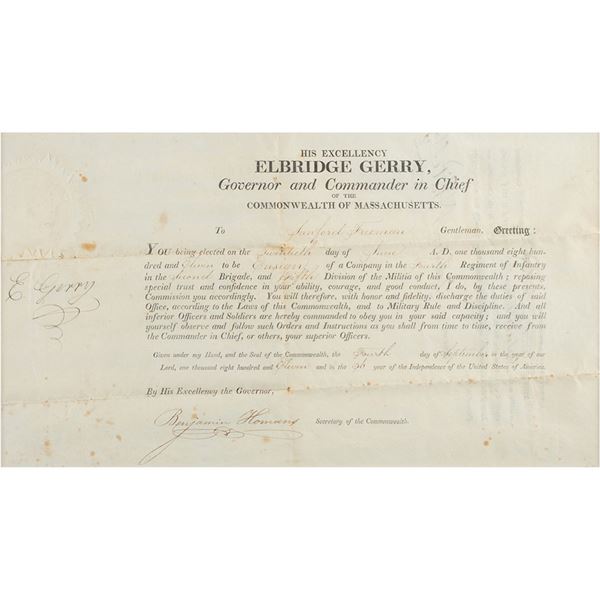 HIS EXCELLENCY
ELBRIDGE GERRY,
Governor and Commander in Chief
OF THE
COMMONWEALTH OF MASSACHUSETTS.
To Sanford Freeman Gentleman, Greeting:
YOU being elected on the Twentieth day of June A. D. one thousand eight hun-
dred and Eleven to be Ensign of a Company in the Fourth Regiment of Infantry
in the Second Brigade, and Fifth Division of the Militia of this Commonwealth; reposing
special trust and confidence in your ability, courage, and good conduct, I do, by these presents,
Commission you accordingly. You will therefore, with honor and fidelity, discharge the duties of said
Office, according to the Laws of this Commonwealth, and to Military Rule and Discipline. And all
inferior Officers and Soldiers are hereby commanded to obey you in your said capacity; and you will
yourself observe and follow such Orders and Instructions as you shall from time to time, receive from
the Commander in Chief, or others, your superior Officers.
E Gerry
Given under my Hand, and the Seal of the Commonwealth, the Fourth day of September in the year of our
Lord, one thousand eight hundred and Eleven and in the 36 year of the Independence of the United States of America.
By His Excellency the Governor,
Benjamin Homans Secretary of the Commonwealth.